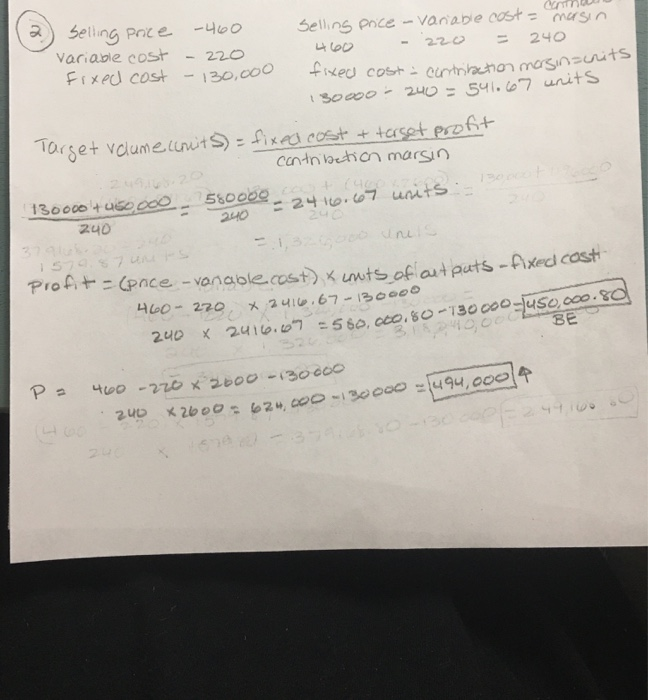 2 Selling price - 460
Variable cost - 220
Fixed cost - 130,000
Selling price - variable cost = contribution margin
460 - 220 = 240
fixed cost ÷ contribution margin = units
130000 ÷ 240 = 541.67 units
Target volume (units) = fixed cost + target profit
contribution margin
130000 + 450,000 = 580000 = 2416.67 units
240 240
Profit = (price - variable cost) x units of outputs - fixed cost
460 - 220 x 2416.67 - 130000
240 x 2416.67 = 580,000.80 - 130000 = 450,000.80
BE
P = 460 - 220 x 2600 - 130000
240 x 2600 = 624,000 - 130000 = 494,000 ↑